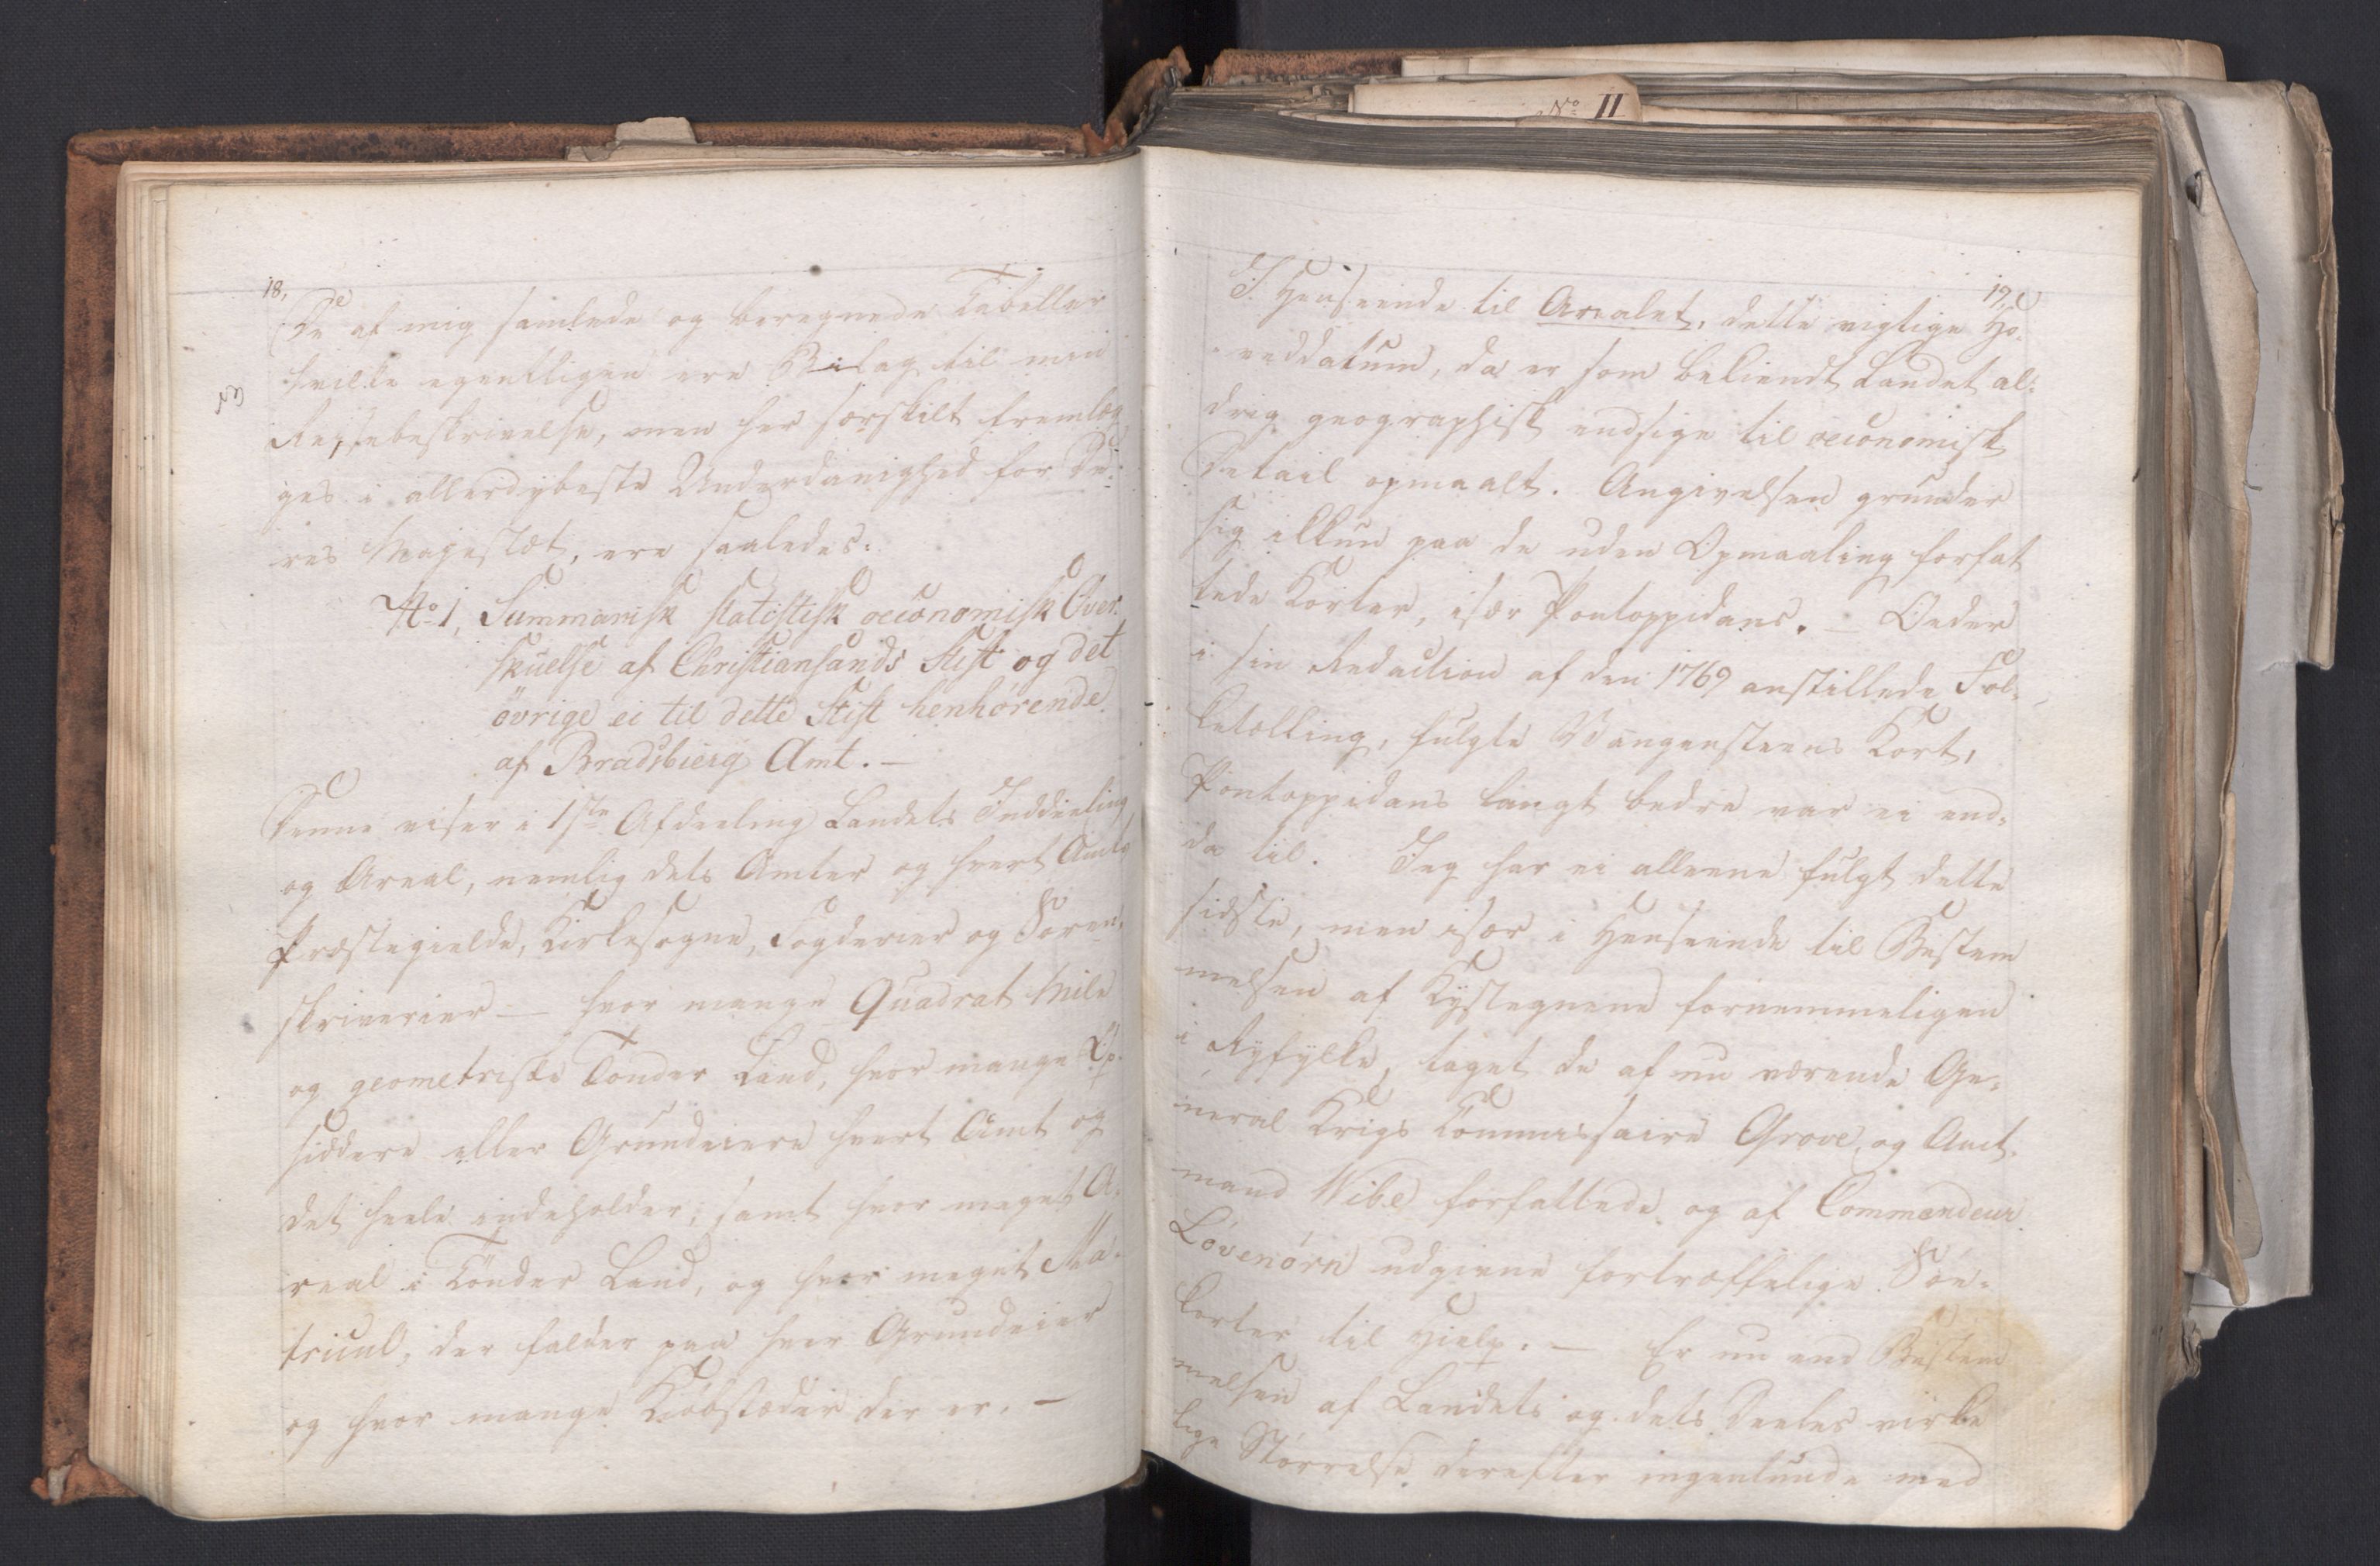 No. II
18,
De af mig samlede og beregnede Tabeller
hvilke egentligen ere Bilag til min
Reysebeskrivelse, men her særskilt fremlæg
ges i allerdybeste Underdanighed for De:
res Majestæt, ere saaledes:
No 1, Summarisk statistisk oeconomisk Over:
skuelse af Christiansands Stift og det
övrige ei til dette Stift henhørende
af Bradsbierg Amt. —
Denne viser i 1ste Afdeeling Landets Inddeeling
og Areal, nemlig dets Amter og hvert Amts
Præstegielde, Kirkesogne, Fogderier og Soren,
skriverier — hvor mange Quadrat Mile
og geometriske Tønder Land, hvor mange Op-
siddere eller Grundeiere hvert Amt og
det heele indeholder; samt hvor meget A,
real i Tönder Land, og hvor meget Ma-
tricul, der falder paa hver Grundeier
og hvor mange Kiøbstæder der er. —
19.
I Henseende til Arealet, dette vigtige Ho-
veddatum, da er som bekiendt Landet al:
drig geographisk endsige til oeconomisk
Detail opmaalt. Angivelsen grunder
sig ikkun paa de uden Opmaaling forfat
tede Korter, især Pontoppidans. — Oeder
i sin Redaction af den 1769 anstillede Fol-
ketælling, fulgte Wangensteens Kort,
Pontoppidans langt bedre var ei end-
da til. Jeg har ei alleene fulgt dette
sidste, men især i Henseende til Bestem
melsen af Kystegnene fornemmeligen
i Ryfylke, taget de af nu værende Ge-
neral Krigs Commissaire Grove og Amt-
mand Wibe forfattede og af Commandeur
Lövenörn udgivne fortræffelige Söe-
korter til Hielp. — Er nu end Bestem
melsen af Landets og dets Deeles virke
lige Størrelse derefter ingenlunde med